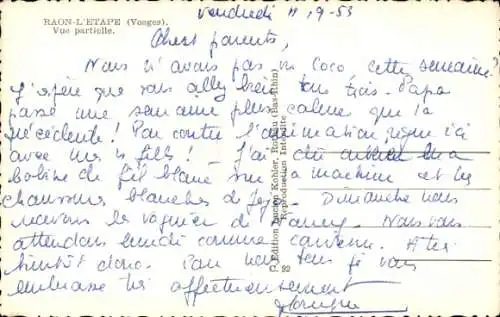 RAON-L'ETAPE (Vosges).
Vue partielle.
Vendredi 11-9-53
Chers parents,
Nous n'avons pas vu Coco cette semaine?
J'espère que vous allez bien tous trois. Papa
passé une semaine plus calme que la
précédente! Par contre l'animation règne ici
avec mes fils! J'ai dû
bobine de fil blanc sur la machine et les
chaussons blancs de Dimanche nous
recevrons le de Nancy. Nous vous
attendons lundi comme convenu. A très
bientôt donc. Pour nous tous je vous
embrasse très affectueusement
© Edition Lucien Kohler, Rothau (Bas-Rhin)
Reproduction Interdite
92